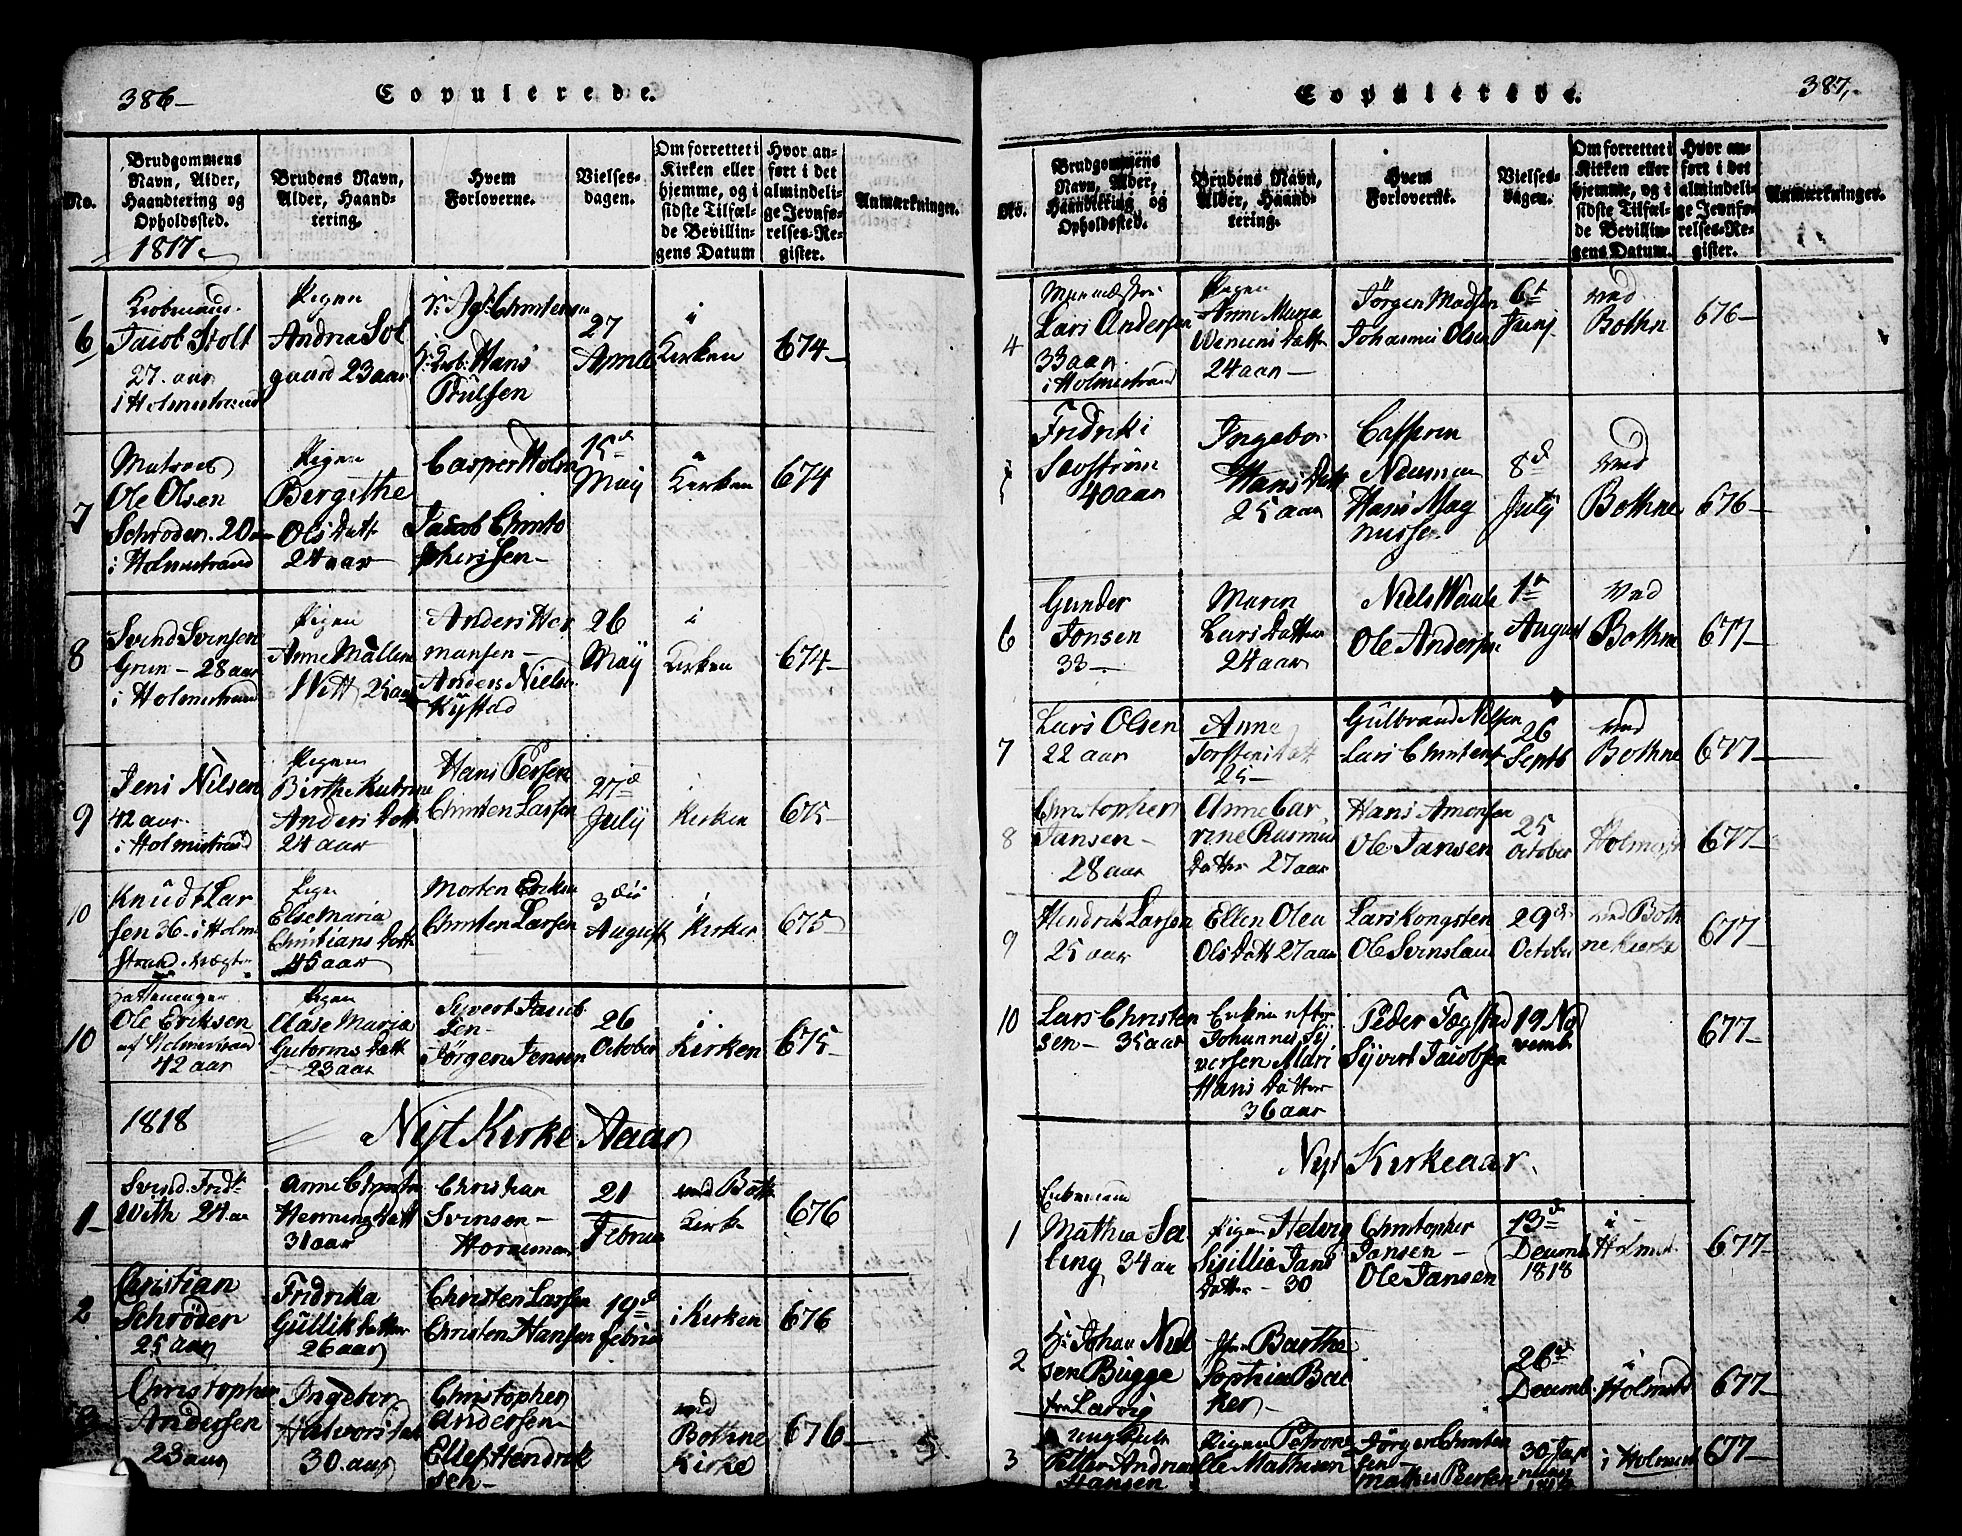 386
Copulerede.
No.
Brudgommens
Navn, Alder,
Haandtering og
Opholdssted.
1817
Brudens Navn,
Alder, Haand-
tering.
Hvem
Forloverne.
Vielses-
dagen.
Om forrettet i
Kirken eller
hjemme, og i
sidste Tilfæl-
de Bevillin-
gens Datum
Hvor an-
ført i det
almindeli-
ge Jevnfø-
relses-Re-
gister.
Anmærkninger.
6
Jacob Stolt
27. aar
i Holmestrand
Pigen
Andrea Sol
gaard 23 aar
Hans
27
i
Kirken
674
7
Matros
Ole Olsen
Schröder. 20
i Holmestrand
Pigen
Bergithe
Ols Datt
24 aar
Casper Holm
Jacob Christo
phersen
15d
Maij
Kirken
674
8
Svend Svensen
Grun - 28 aar
i Holmestrand
Pigen
Anne Mallene
Witt, 25 aar
Anders Her
mansen -
Anders Niels
Kijstad
26
Maij
i
Kirken
674
9
Jens Nilsen
42 aar
i Holmestrand
Pigen
Birthe Katrine
Anders Datt
24 aar
Hans Persen
Christen Larsen
27d
Julij
i
Kirken
675
10
Knudt Lar
sen 36 - i Holm
strand. Vægter
Pigen
Else Maria
Christians Datt
45 aar
Morten Eriksen
Christen Larsen
3die
August
i
Kirken
675
10
Ole Eriksen
af Holmestrand
42 aar
Pigen
Aase Maria
Gutorms Datt
23 aar
Syvert Jacob
sen -
Jörgen Jensen
26
October
i
Kirken
675
1818
Nyt Kirke Aaar
1
Svend Fridk
With 24 aar
Anne Christin
Henning Datt
31 aar
Christian
Svensen -
Horneman
21
Februar
ved Both
Kirke
676
2
Christian
Schröder
25 aar
Fridrika
Gullik Datter
26 aar
Christen Larsen
Christen Hansen
19d
Februar
i Kirken
676
3
Christopher
Andersen
23 aar
Ingebor
Halvors Datt
30. aar
Christopher
Andersen
Ellef Hendrik
sen -
ved
Bothne
Kirke
676
387
Copulerede.
No.
Brudgommens
Navn, Alder,
Haandtering og
Opholdssted.
Brudens Navn,
Alder, Haand-
tering.
Hvem
Forloverne.
Vielses-
dagen.
Om forrettet i
Kirken eller
hjemme, og i
sidste Tilfæl-
de Bevillin-
gens Datum.
Hvor an-
ført i det
almindeli-
ge Jevnfø-
relses-Re-
gister.
Anmærkninger.
4
Lars Andersen
33 aar
i Holmestrand
Pigen
Anne Maria
24 aar
Jörgen Madsen
Johannes Olsen
6t
Junij
ved
Bothn
676
5
Fridrik
40 aar
Ingebor
Hans Datt
25 aar
Casper
Neuman
Hans Mag
nussen
8d
Julij
ved
Bothne
676
6
Gunder
Jonsen
33
Maren
Lars Datter
24 aar
Ole Andersen
1t
August
ved
Bothne
677
7
Lars Olsen
22 aar
Anne
Torstens Datt
25
Gulbrand Nilsen
Lars Christens
26
Septb
ved
Bothne
677
8
Christopher
Jansen -
28 aar
Anne Car
rine Rasmus
Datter 27 aar
Hans Amonsen
Ole Jansen
25
October
Holmest
677
9
Hendrik Larsen
25 aar
Ellen Olea
Ols Datt 27 aar
Lars Kongsten
29de
October
ved Both
ne Kierke
677
10
Lars Christen
sen - 35 aar
Enken efter
Johannes Sy
versen Mari
Hans Datter
36 aar
Peder Fogstad
Syvert Jacobsen
19 No
vemb
677
Nyt Kirkeaar.
1
Mathia Se
ling, 34 aar
Pigen Helvig
Sisillia Jans
Datter - 30
Christopher
Jansen -
Ole Jansen
13d
Decemb
1818
i
Holmst
677
2
Hr Johan Niel
sen Bugge
fra Larvig
Barthe
Sophia Bac
ker
26d
Decemb
i
Holmstd
677
3
Ungkarl
Peter Andrea
Hansen
Pigen Petrone
lle Mathisen
Jörgen Christen
sen
Mathis Peersen
30 Ja
nuar
i Holmest
677